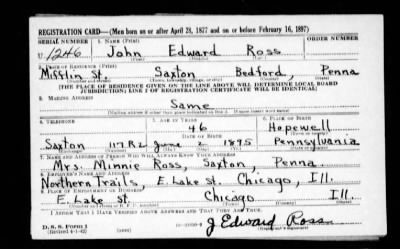 REGISTRATION CARD—(Men born on or after April 28, 1877 and on or before February 16, 1897)
SERIAL NUMBER 1. NAME (Print) ORDER NUMBER
U 1246 John Edward Ross
(First) (Middle) (Last)
2. PLACE OF RESIDENCE (Print)
Mifflin St. Saxton Bedford, Penna
(Number and street) (Town, township, village, or city) (County) (State)
[THE PLACE OF RESIDENCE GIVEN ON THE LINE ABOVE WILL DETERMINE LOCAL BOARD
JURISDICTION; LINE 2 OF REGISTRATION CERTIFICATE WILL BE IDENTICAL]
3. MAILING ADDRESS
Same
[Mailing address if other than place indicated on line 2. If same insert word same]
4. TELEPHONE 5. AGE IN YEARS 6. PLACE OF BIRTH
46 Hopewell
DATE OF BIRTH
Saxton 117R2 June 2 1895 Pennsylvania
7. NAME AND ADDRESS OF PERSON WHO WILL ALWAYS KNOW YOUR ADDRESS
Mrs. Minnie Ross, Saxton, Penna.
8. EMPLOYER'S NAME AND ADDRESS
Northern Trails, E. Lake St. Chicago, Ill.
9. PLACE OF EMPLOYMENT OR BUSINESS
E. Lake St Chicago Ill.
(Number and street or R. F. D. number) (Town) (County) (State)
I AFFIRM THAT I HAVE VERIFIED ABOVE ANSWERS AND THAT THEY ARE TRUE.
D. S. S. Form 1
(Revised 4-1-42) J Edward Ross